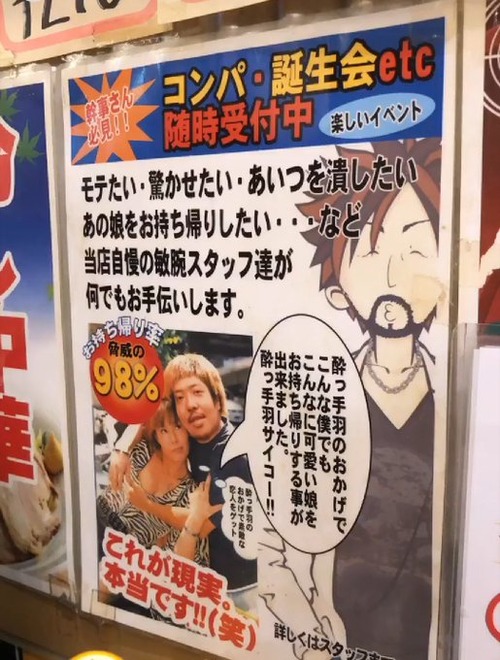 幹事さん
必見!!
コンパ・誕生会etc
随時受付中
楽しいイベント
モテたい・驚かせたい・あいつを潰したい
あの娘をお持ち帰りしたい・・・など
当店自慢の敏腕スタッフ達が
何でもお手伝いします。
お持ち帰り率
脅威の
98%
酔っ手羽のおかげで
こんな僕でも
こんなに可愛い娘を
お持ち帰りする事が
出来ました。
酔っ手羽サイコー!!
酔っ手羽の
おかげで素敵な
恋人をゲット
これが現実。
本当です!!(笑)
詳しくはスタッフまで
中華